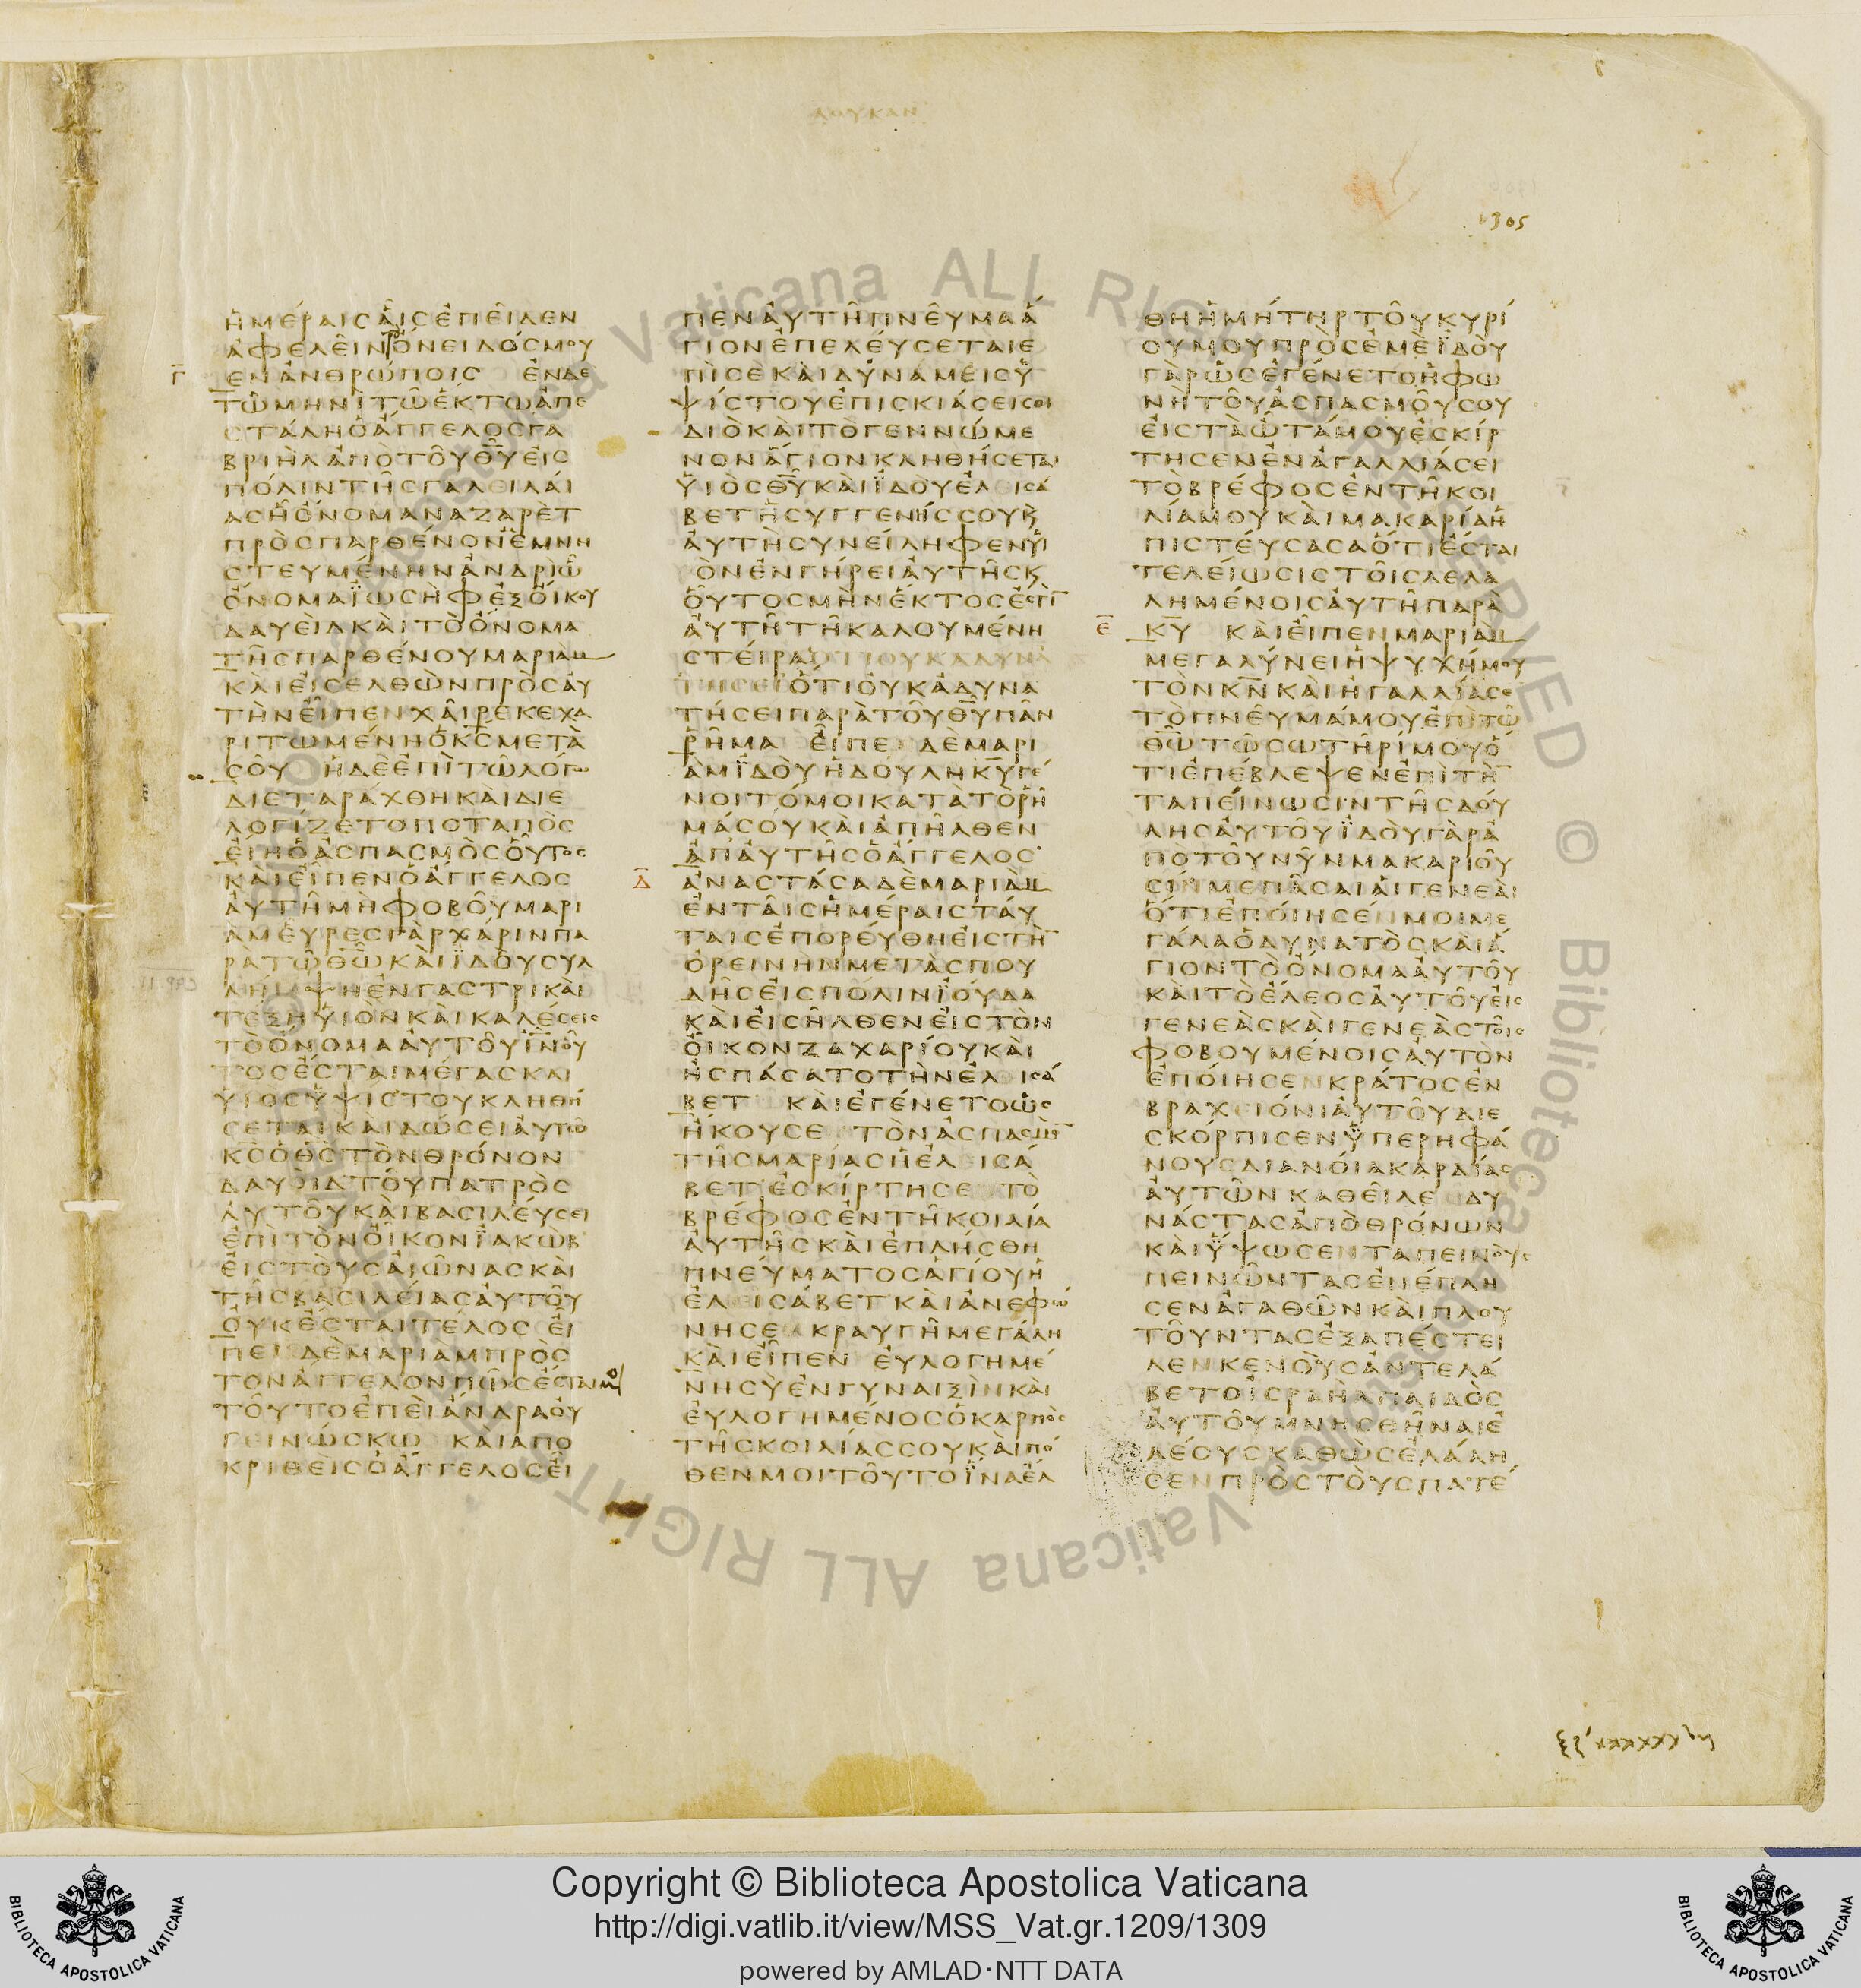 ΛΟΥΚΑΝ
1305
ἩΜΈΡΑΙϹΑἿϹἘΠΕῖΔΕΝ
ἈΦΕΛΕῖΝΤῸὌΝΕΙΔΌϹΜΟΥ
Γ̅ ἘΝἈΝΘΡΏΠΟΙϹ ἘΝΔΕ
ΤῶΜΗΝῚΤῶἝΚΤΩἈΠΕ
ϹΤΆΛΗὉἌΓΓΕΛΟϹΓΑ
ΒΡΙῊΛἈΠῸΤΟῦΘ̅Υ̅ΕἸϹ
ΠΌΛΙΝΤῆϹΓΑΛΕΙΛΑΊ
ΑϹᾟὌΝΟΜΑΝΑΖΑΡῈΤ
ΠΡῸϹΠΑΡΘΈΝΟΝἘΜΝΗ
ϹΤΕΥΜΈΝΗΝἈΝΔΡῚᾯ
ὌΝΟΜΑΪΩϹῊΦἘΞΟἼΚΟΥ
ΔΑΥΕῚΔΚΑῚΤῸὌΝΟΜΑ
ΤῆϹΠΑΡΘΈΝΟΥΜΑΡΙᾺΜ
ΚΑῚΕἸϹΕΛΘῺΝΠΡῸϹΑΥ
ΤῊΝΕἾΠΕΝΧΑῖΡΕΚΕΧΑ
ΡΙΤΩΜΈΝΗὉΚ̅Ϲ̅ΜΕΤᾺ
ϹΟῦ ἩΔῈἘΠῚΤῶΛΌΓΩ
ΔΙΕΤΑΡΆΧΘΗΚΑῚΔΙΕ
ΛΟΓΊΖΕΤΟΠΟΤΑΠῸϹ
ΕἼΗὉἈϹΠΑϹΜῸϹΟὟΤΟϹ
ΚΑῚΕἾΠΕΝὉἌΓΓΕΛΟϹ
ΑΥΤῆΜῊΦΟΒΟῦΜΑΡΙ
ᾺΜΕὟΡΕϹΓᾺΡΧΆΡΙΝΠΑ
ΡᾺΤῶΘ̅Ω̅ΚΑῚΪΔΟῪϹΥΛ
ΛΉΜΨΗἘΝΓΑϹΤΡῚΚΑῚ
ΤΈΞΗΥἹῸΝΚΑῚΚΑΛΈϹΕΙϹ
ΤῸὌΝΟΜΑΑΥΤΟῦΙ̅Ν̅ΟὟ
ΤΟϹἜϹΤΑΙΜΈΓΑϹΚΑῚ
ΥἹῸϹὙΨΊϹΤΟΥΚΛΗΘΉ
ϹΕΤΑΙΚΑῚΔΏϹΕΙΑΥΤῶ
Κ̅Ϲ̅ὉΘ̅Ϲ̅ΤῸΝΘΡΌΝΟΝ
ΔΑΥΕῚΔΤΟῦΠΑΤΡῸϹ
ΑΥΤΟῦΚΑῚΒΑϹΙΛΕΎϹΕΙ
ἘΠῚΤῸΝΟἾΚΟΝΪΑΚῺΒ
ΕἸϹΤΟῪϹΑἸῶΝΑϹΚΑῚ
ΤῆϹΒΑϹΙΛΕΊΑϹΑΥΤΟῦ
ΟΥΚἜϹΤΑΙΤΈΛΟϹ ΕἾ
ΠΕΝΔῈΜΑΡΙᾺΜΠΡῸϹ
ΤῸΝἌΓΓΕΛΟΝΠῶϹἜϹΤΑΙΜΟΙ
ΤΟῦΤΟἘΠΕῚἌΝΔΡΑΟΥ
ΓΕΙΝΏϹΚΩ ΚΑῚἈΠΟ
ΚΡΙΘΕῚϹὉἌΓΓΕΛΟϹΕἾ
ΠΕΝΑΥΤῆΠΝΕῦΜΑἍ
ΓΙΟΝἘΠΕΛΕΎϹΕΤΑΙἘ
ΠῚϹῈΚΑῚΔΎΝΑΜΕΙϹὙ
ΨΊϹΤΟΥἘΠΙϹΚΙΆϹΕΙϹΟΙ
ΔΙῸΚΑῚΤῸΓΕΝΝΏΜΕ
ΝΟΝἍΓΙΟΝΚΛΗΘΉϹΕΤΑΙ
ΥἹῸϹΘ̅Υ̅ΚΑῚΪΔΟῪἘΛΕΙϹΆ
ΒΕΤἩϹΥΓΓΕΝΊϹϹΟΥΚ̀
ΑΥΤῊϹΥΝΕΊΛΗΦΕΝΥἹ
ῸΝἘΝΓΉΡΕΙΑΥΤῆϹΚ̀
ΟὟΤΟϹΜῊΝἝΚΤΟϹἘϹΤῚ̅
ΑΥΤῆΤῆΚΑΛΟΥΜΈΝΗ
ϹΤΕΊΡΑΟΤΙΟΥΚΑΔΥΝΑ
ΤΗϹΕΙὍΤΙΟΥΚἈΔΥΝΑ
ΤΉϹΕΙΠΑΡᾺΤΟῦΘ̅Υ̅ΠᾶΝ
ῬῆΜΑ ΕἾΠΕΝΔῈΜΑΡΙ
ᾺΜΪΔΟῪἩΔΟΎΛΗΚ̅Υ̅ΓΈ
ΝΟΙΤΌΜΟΙΚΑΤᾺΤῸῬῆ
ΜΆϹΟΥΚΑῚἈΠῆΛΘΕΝ
ἈΠΑΥΤῆϹὉἌΓΓΕΛΟϹ·
Δ̅ ἈΝΑϹΤᾶϹΑΔῈΜΑΡΙᾺΜ
ἘΝΤΑῖϹἩΜΈΡΑΙϹΤΑΎ
ΤΑΙϹἘΠΟΡΕΎΘΗΕἸϹΤῊ̅
ὈΡΕΙΝῊΝΜΕΤᾺϹΠΟΥ
ΔῆϹΕἸϹΠΌΛΙΝΪΟΎΔΑ
ΚΑῚΕἸϹῆΛΘΕΝΕἸϹΤῸΝ
ΟἾΚΟΝΖΑΧΑΡΊΟΥΚΑῚ
ἨϹΠΆϹΑΤΟΤῊΝἘΛΕΙϹΆ
ΒΕΤ ΚΑῚἘΓΈΝΕΤΟὩϹ
ἬΚΟΥϹΕΝΤῸΝἈϹΠΑϹΜῸ̅
ΤῆϹΜΑΡΊΑϹἩἘΛΕΙϹΆ
ΒΕΤἘϹΚΊΡΤΗϹΕΝΤῸ
ΒΡΈΦΟϹἘΝΤῆΚΟΙΛΊΑ
ΑΥΤῆϹΚΑῚἘΠΛΉϹΘΗ
ΠΝΕΎΜΑΤΟϹἉΓΊΟΥἩ
ἘΛΕΙϹΆΒΕΤΚΑῚἈΝΕΦΏ
ΝΗϹΕΝΚΡΑΥΓῆΜΕΓΆΛΗ
ΚΑῚΕἾΠΕΝ ΕΥΛΟΓΗΜΈ
ΝΗϹῪἘΝΓΥΝΑΙΞῚΝΚΑῚ
ΕΥΛΟΓΗΜΈΝΟϹὉΚΑΡΠῸϹ
ΤῆϹΚΟΙΛΊΑϹϹΟΥΚΑῚΠΌ
ΘΕΝΜΟΙΤΟῦΤΟἽΝΑἜΛ
ΘΗἩΜΉΤΗΡΤΟῦΚΥΡΊ
ΟΥΜΟΥΠΡῸϹἘΜῈΪΔΟῪ
ΓᾺΡὩϹἘΓΈΝΕΤΟἩΦΩ
ΝῊΤΟῦἈϹΠΑϹΜΟῦϹΟΥ
ΕἸϹΤᾺὮΤΆΜΟΥἘϹΚΊΡ
ΤΗϹΕΝἘΝἈΓΑΛΛΙΆϹΕΙ
ΤῸΒΡΈΦΟϹἘΝΤῆΚΟΙ
ΛΊΑΜΟΥΚΑῚΜΑΚΑΡΊΑἩ
ΠΙϹΤΕΎϹΑϹΑὍΤΙἜϹΤΑΙ
ΤΕΛΕΊΩϹΙϹΤΟῖϹΛΕΛΑ
ΛΗΜΈΝΟΙϹΑΥΤῆΠΑΡᾺ
Ε̅ Κ̅Υ̅ ΚΑῚΕἾΠΕΝΜΑΡΙᾺΜ
ΜΕΓΑΛΎΝΕΙἩΨΥΧΉΜΟΥ
ΤῸΝΚ̅Ν̅ΚΑῚἨΓΑΛΛΊΑϹΕ
ΤῸΠΝΕῦΜΆΜΟΥἘΠῚΤῶ
Θ̅Ω̅ΤῶϹΩΤῆΡΊΜΟΥὍ
ΤΙἘΠΈΒΛΕΨΕΝἘΠῚΤῊ̅
ΤΑΠΕΊΝΩϹΙΝΤῆϹΔΟΎ
ΛΗϹΑΥΤΟῦΪΔΟῪΓᾺΡἈ
ΠῸΤΟῦΝῦΝΜΑΚΑΡΙΟῦ
ϹΊΝΜΕΠᾶϹΑΙΑἹΓΕΝΕΑῚ
ὍΤΙἘΠΟΊΗϹΈΝΜΟΙΜΕ
ΓΆΛΑὉΔΥΝΑΤῸϹΚΑῚἍ
ΓΙΟΝΤῸὌΝΟΜΑΑΥΤΟῦ
ΚΑῚΤῸἜΛΕΟϹΑΥΤΟῦΕἸϹ
ΓΕΝΕᾺϹΚΑῚΓΕΝΕᾺϹΤΟῖϹ
ΦΟΒΟΥΜΈΝΟΙϹΑΥΤῸΝ
ἘΠΟΊΗϹΕΝΚΡΆΤΟϹἘΝ
ΒΡΑΧΕΙΌΝΙΑΥΤΟῦΔΙΕ
ϹΚΌΡΠΙϹΕΝὙΠΕΡΗΦΆ
ΝΟΥϹΔΙΑΝΟΊΑΚΑΡΔΊΑϹ
ΑΥΤῶΝΚΑΘΕῖΛΕΝΔΥ
ΝΆϹΤΑϹἈΠῸΘΡΌΝΩΝ
ΚΑῚὝΨΩϹΕΝΤΑΠΕΙΝΟῪϹ
ΠΕΙΝῶΝΤΑϹἘΝΈΠΛΗ
ϹΕΝἈΓΑΘῶΝΚΑῚΠΛΟΥ
ΤΟῦΝΤΑϹἘΞΑΠΈϹΤΕΙ
ΛΕΝΚΕΝΟῪϹἈΝΤΕΛΆ
ΒΕΤΟΪϹΡΑῊΛΠΑΙΔῸϹ
ΑΥΤΟῦΜΝΗϹΘῆΝΑΙἘ
ΛΈΟΥϹΚΑΘῺϹἘΛΆΛΗ
ϹΕΝΠΡῸϹΤΟῪϹΠΑΤΈ
Copyright © Biblioteca Apostolica Vaticana
http://digi.vatlib.it/view/MSS_Vat.gr.1209/1309
powered by AMLAD·NTT DATA
BIBLIOTECA APOSTOLICA VATICANA
BIBLIOTECA APOSTOLICA VATICANA